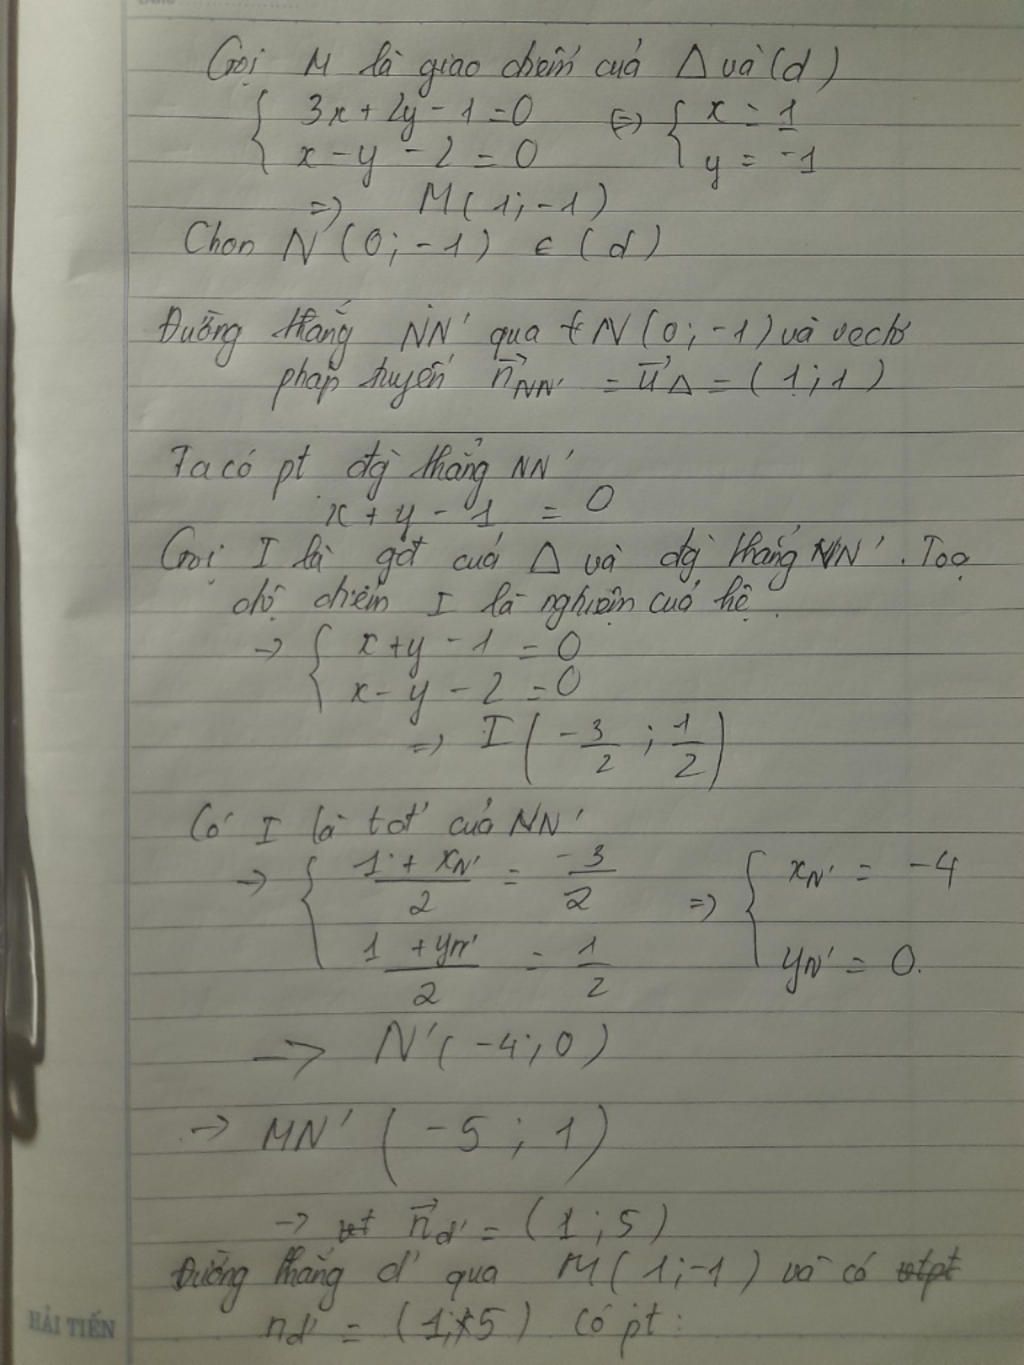 Gọi M là giao điểm của Δ và (d)
{ 3x + 2y - 1 = 0 <=> { x = 1
{ x - y - 2 = 0 { y = -1
=> M(1; -1)
Chọn N(0; -1) ∈ (d)
Đường thẳng NN' qua N(0; -1) và vectơ
pháp tuyến n⃗NN' = u⃗Δ = (1; 1)
Ta có pt đg thẳng NN'
x + y - 1 = 0
Gọi I là gđ của Δ và đg thẳng NN'. Toạ
độ điểm I là nghiệm của hệ
-> { x + y - 1 = 0
{ x - y - 2 = 0
=> I(-3/2; 1/2)
Có I là tđ của NN'
-> { (1 + xN')/2 = -3/2 => { xN' = -4
{ (1 + yN')/2 = 1/2 { yN' = 0.
-> N'(-4; 0)
-> MN' (-5; 1)
-> n⃗d' = (1; 5)
Đường thẳng d' qua M(1; -1) và có vtpt
nd' = (1; 5) có pt:
HẢI TIẾN